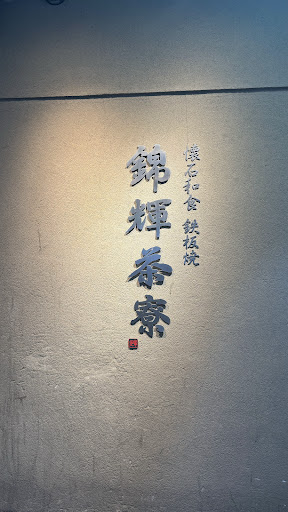 懐石和食 鉄板焼
錦輝茶寮